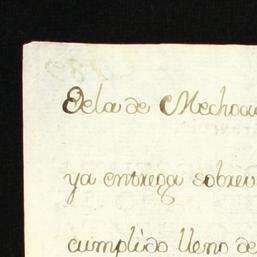 Dela de Mechoa
ya entrega sobrev
cumplido lleno de